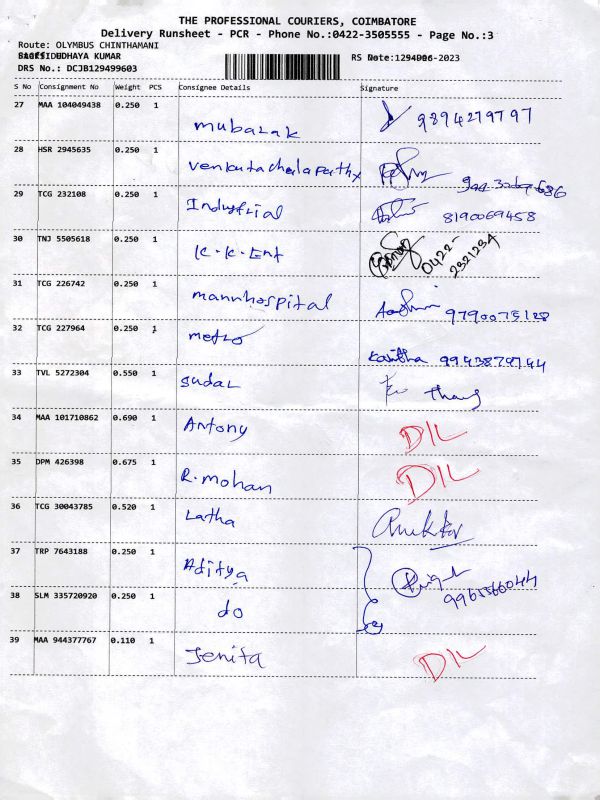 THE PROFESSIONAL COURIERS, COIMBATORE
Delivery Runsheet - PCR - Phone No.:0422-3505555 - Page No.:3
Route: OLYMBUS CHINTHAMANI
UDHAYA KUMAR RS
DRS No.: DCJB129499603
S No Consignment No Weight PCS Consignee Details Signature
27 MAA 104049438 0.250 1 Mubarak 9894279797
28 HSR 2945635 0.250 1 Venkatachalapathy
29 TCG 232108 0.250 1 Industrial 8190069458
30 TNJ 5505618 0.250 1 K.K.Ent 0422-2321234
31 TCG 226742 0.250 1 mannhospital 9790075128
32 TCG 227964 0.250 1 metro Kavitha 9943879744
33 TVL 5272304 0.550 1 Sudar
34 MAA 101710862 0.690 1 Antony DIL
35 DPM 426398 0.675 1 R.mohan DIL
36 TCG 30043785 0.520 1 Latha
37 TRP 7643188 0.250 1 Aditya
38 SLM 335720920 0.250 1 do
39 MAA 944377767 0.110 1 Jenita DIL